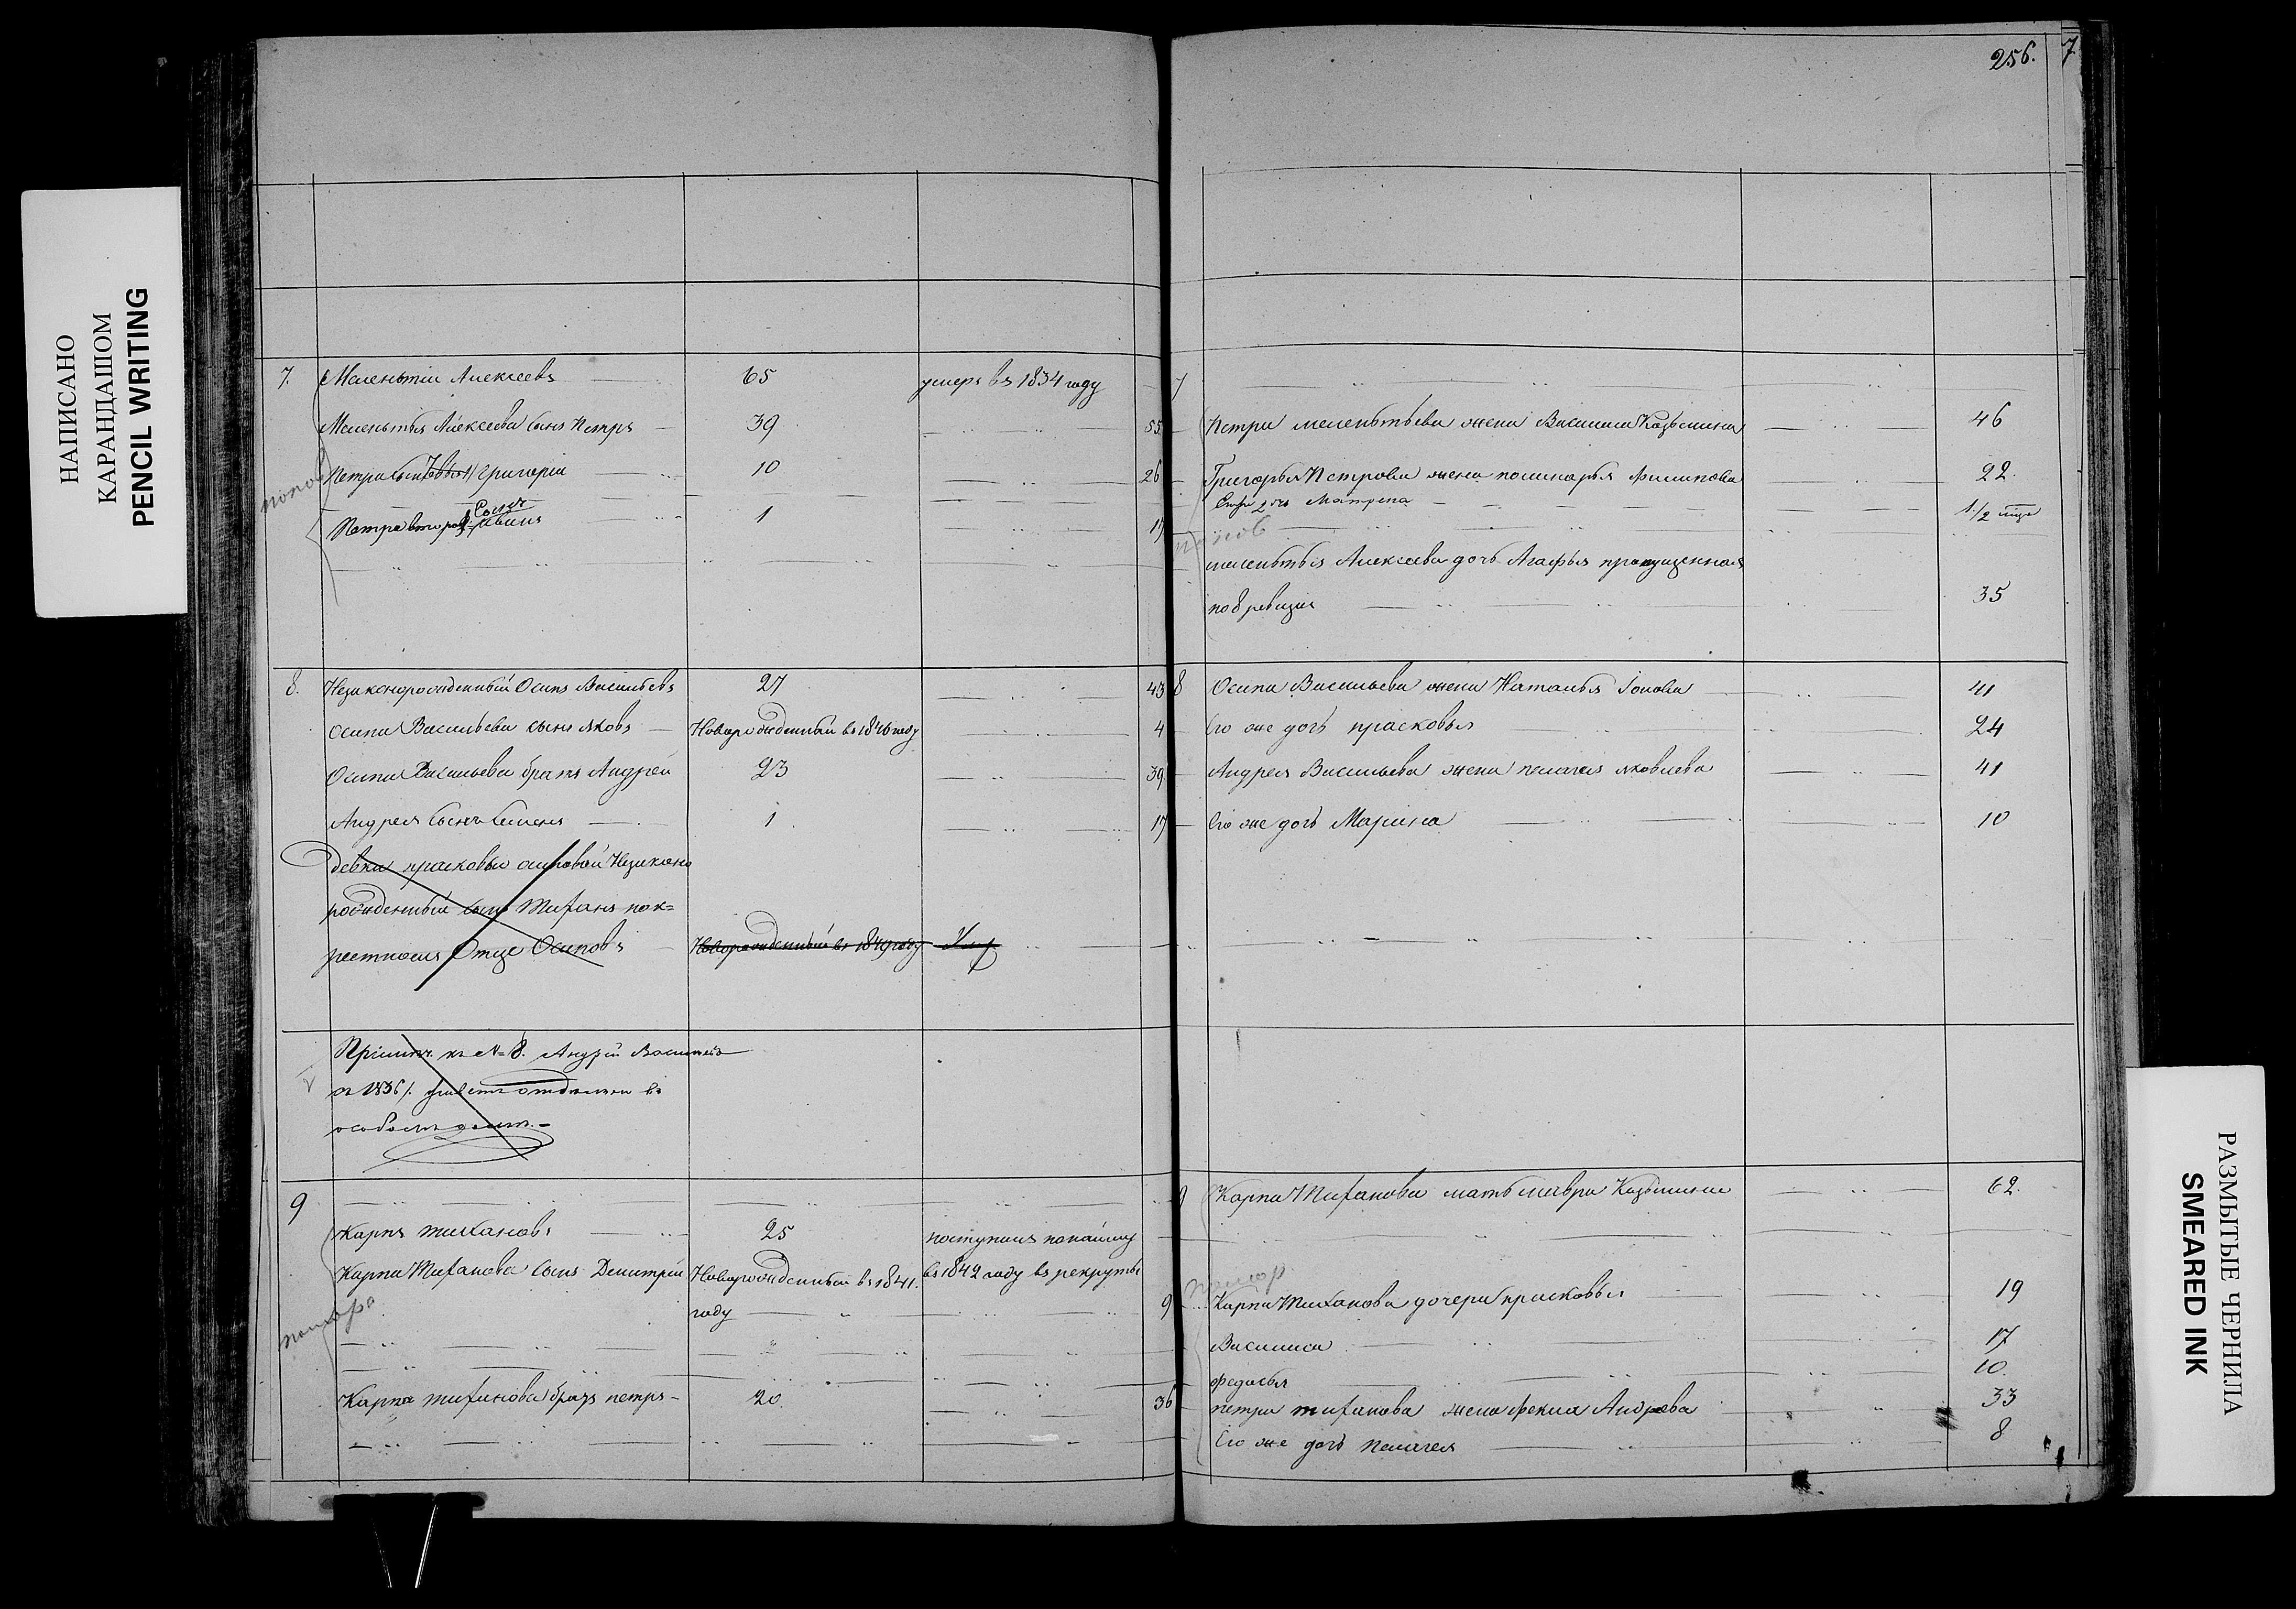 НАПИСАНО
КАРАНДАШОМ
PENCIL WRITING
256. 7
7. Меленьтии Алексеевъ 65 умеръ въ 1834 году
Меленьтья Алексеева сынъ Петръ 39 55
Петра сынъ Григории 10 26
Петра второй Сынъ 1 17
7
Петра меленьтьева жена Василиса Козьмина 46
Григорья Петрова жена полинарья Филипова 22.
дочь Матрена 1/2
меленьтья Алексеева дочь Агафья пропущенная
по 8 ревизии 35
8. Незаконорожденный Осипъ Васильевъ 27 43
Осипа Васильева сынъ яковъ Новорожденный въ 1846 году 4
Осипа Васильева братъ Андрей 23 39
Андрея сынъ Семенъ 1 17
девки прасковьи осиповой Незаконо
рожденный сынъ Тиханъ пок=
рестнаго Отца Осиповъ Новорожденный въ 1849 году Умер
8 Осипа Васильева жена Наталья Ионова 41
Его же дочь прасковья 24
Андрея Васильева жена пелагея яковлева 41
Его же дочь Марина 10
къ № 8. Андрей Васильевъ
отдельно въ
особомъ доме.
9
Карпъ тихановъ 25 поступилъ понайму
Карпа Тиханова сынъ Демитрий Новорожденный въ 1841. въ 1842 году въ рекруты
году 9
Карпа тиханова братъ петръ 20 36
9 Карпа Тиханова мать мавра Козьмина 62.
Карпа Тиханова дочери прасковья 19
Василиса 17
федосья 10.
петра тиханова жена фекла Андрева 33
Его же дочь Пелагея 8
РАЗМЫТЫЕ ЧЕРНИЛА
SMEARED INK